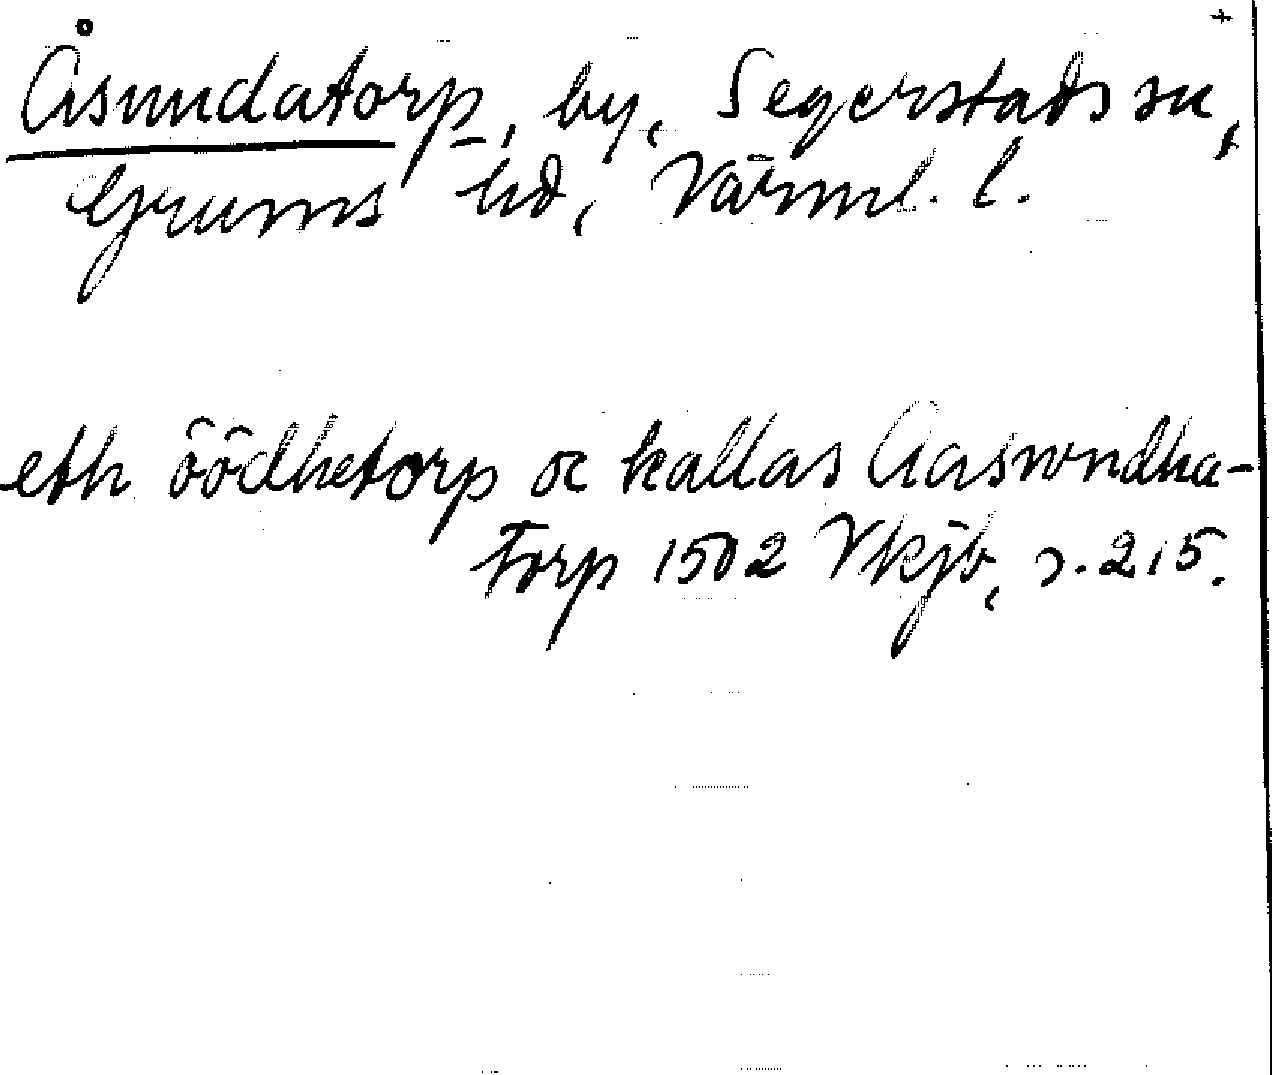 Åsundatorp, by, Segerstads sn,
Grums hd, Värml. l.
eth öödhetorp oc kallas Aaswndha-
torp 1502 Vkjb, s. 215.